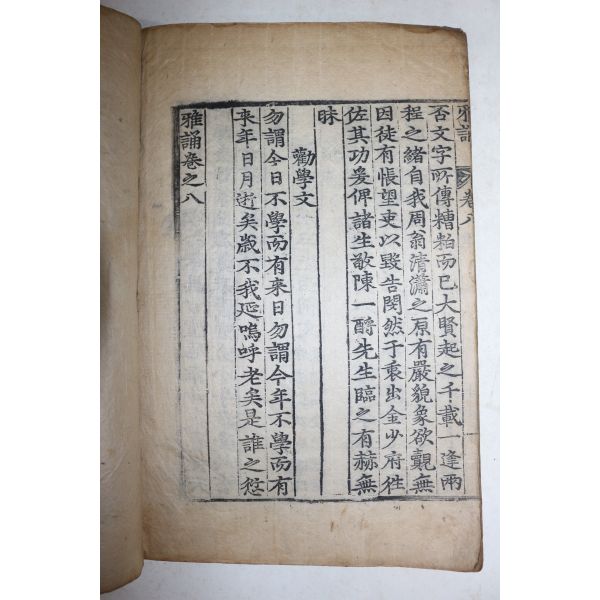 雅誦 卷八
否文字所傳糟粕而已大賢起之千載一逢兩
程之緒自我周翁淸瀟之原有嚴貌象欲覿無
因徒有悵望吏以毀告閔然于衷出金少府徃
佐其功爰俾諸生敬陳一酹先生臨之有赫無
昧
勸學文
勿謂今日不學而有来日勿謂今年不學而有
来年日月逝矣歲不我延嗚呼老矣是誰之愆
雅誦卷之八